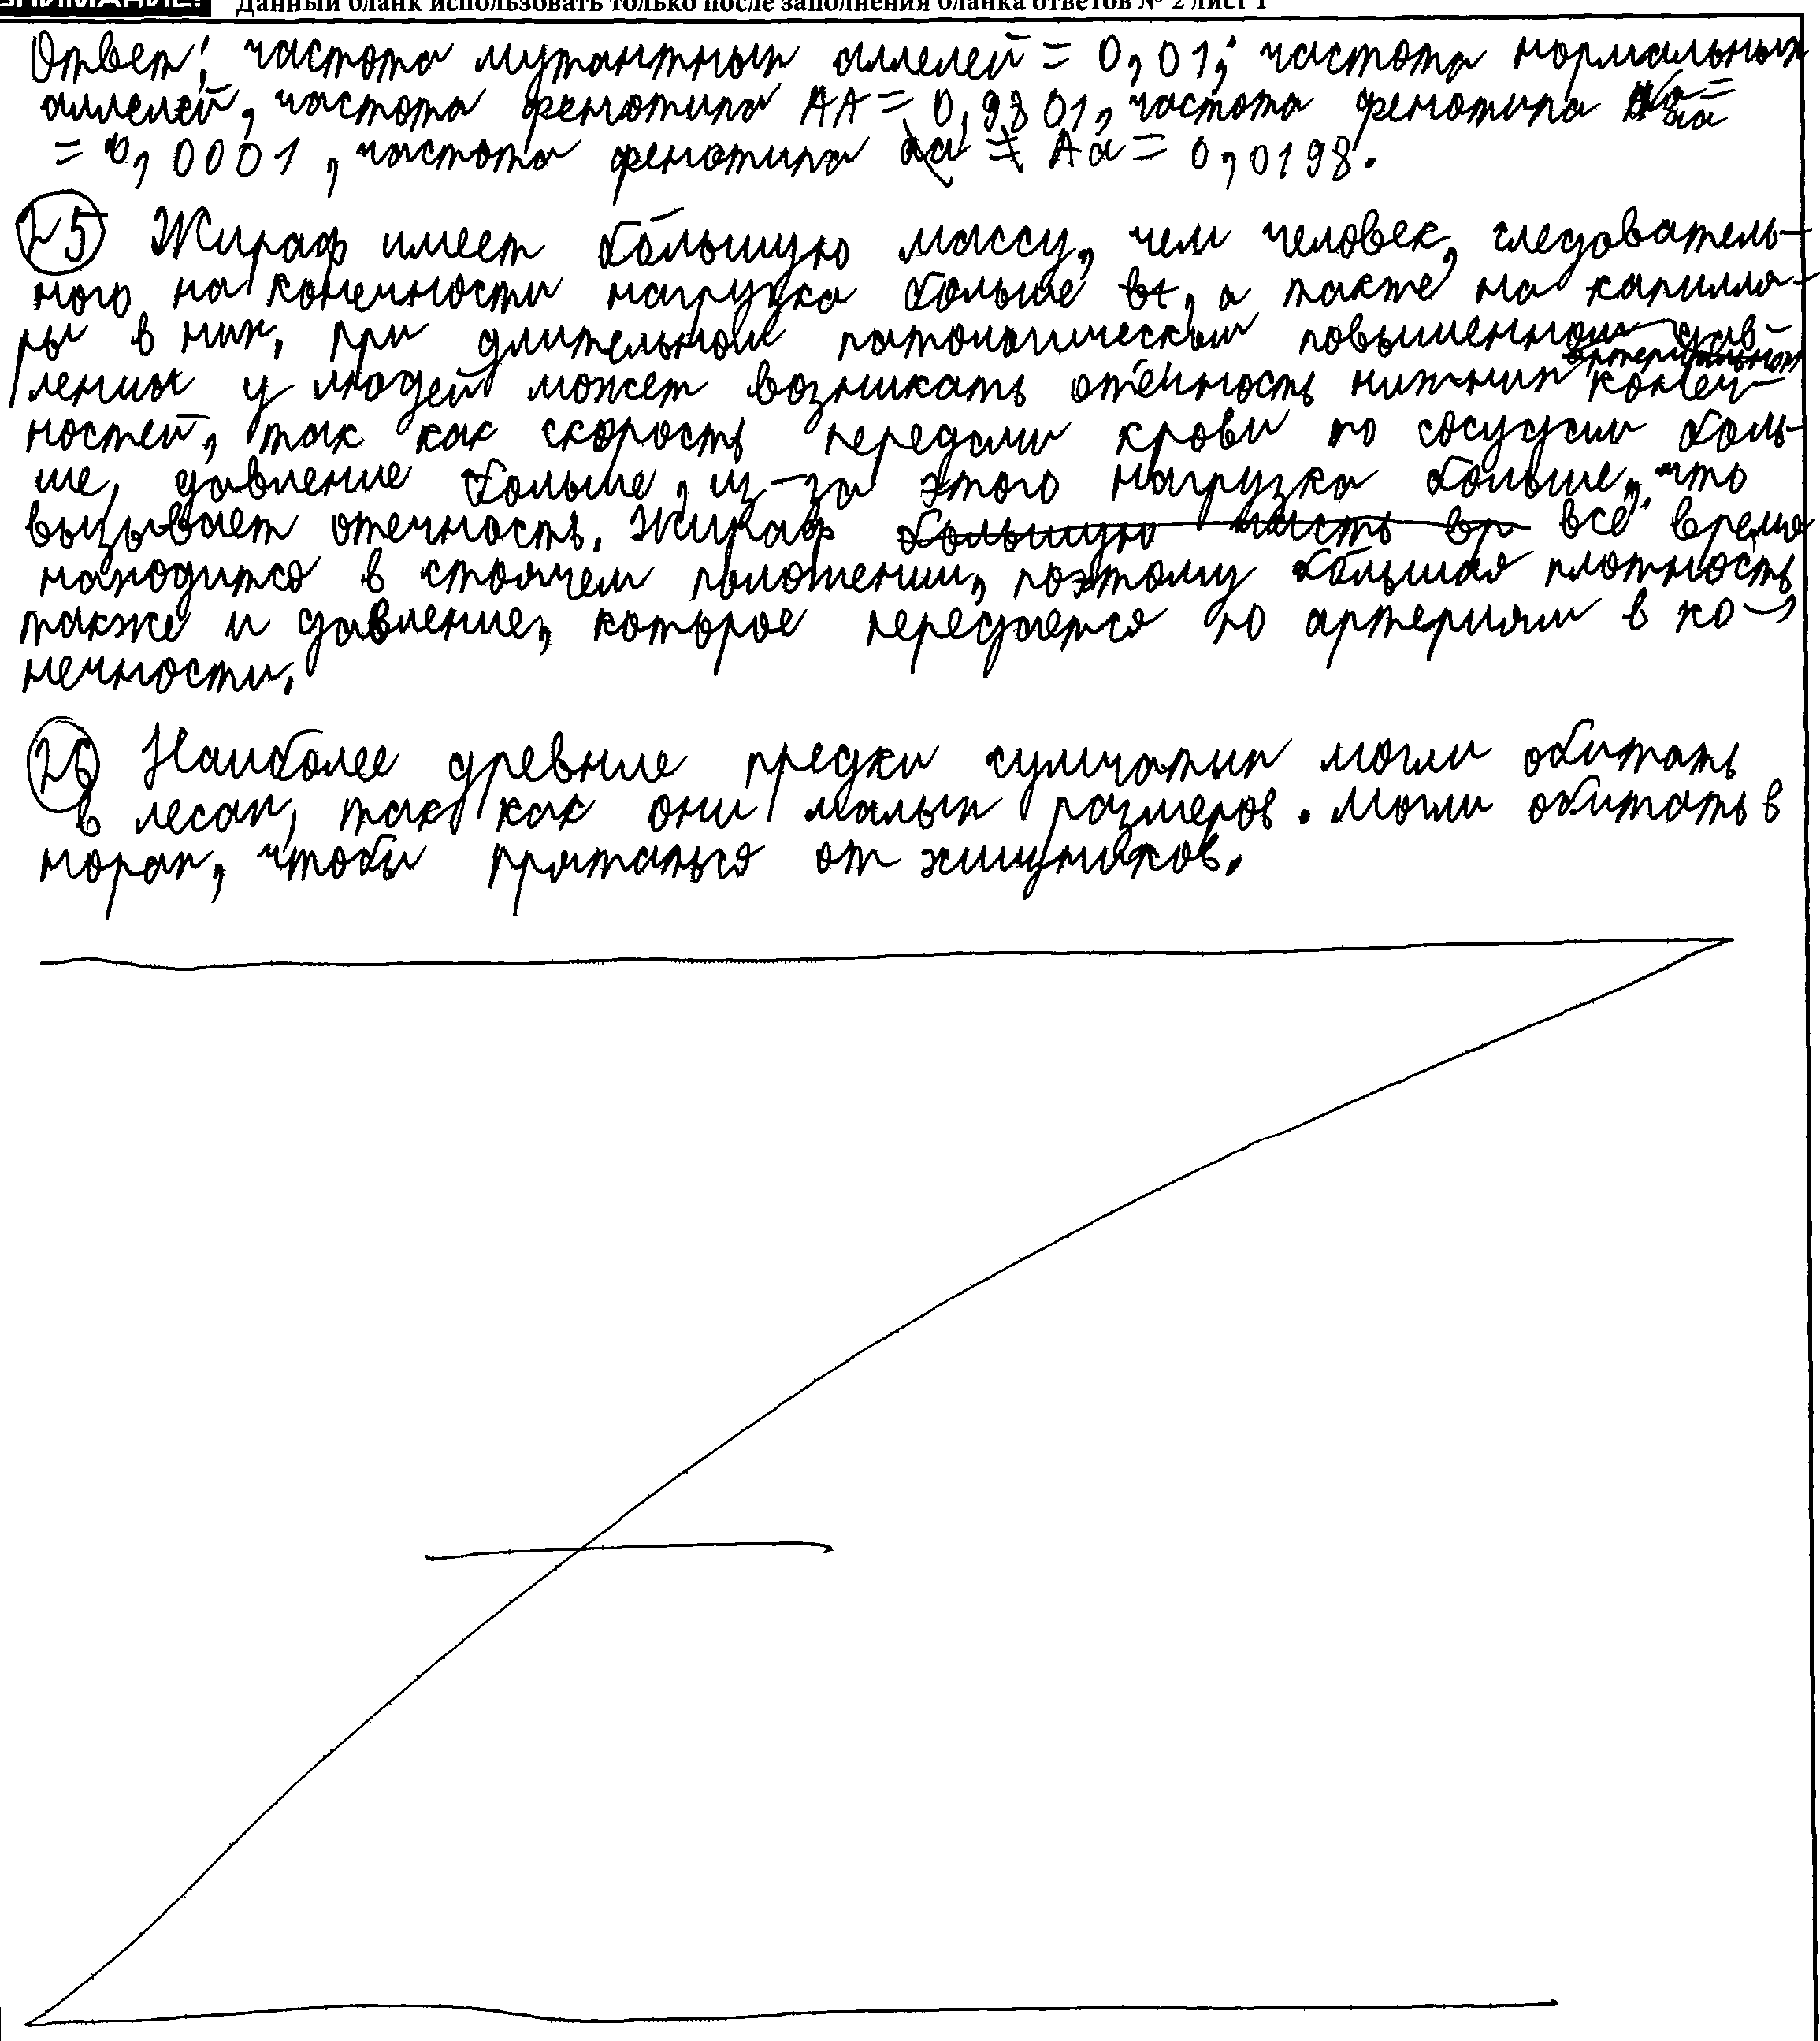 ВНИМАНИЕ! Данный бланк использовать только после заполнения бланка ответов № 2 лист 1
Ответ: частота мутантных аллелей = 0,01; частота нормальных
аллелей, частота фенотипа АА = 0,9801, частота фенотипа аа =
= 0,0001, частота фенотипа Аа = 0,0198.
25 Жираф имеет бо́льшую массу, чем человек, следователь-
ного на конечности нагрузка больше, а также на капилля-
ры в них, при длительном патологическом повышенном дав-
артериальном
лении у людей может возникать отёчность нижних конеч-
ностей, так как скорость передачи крови по сосудам боль-
ше, давление больше, из-за этого нагрузка больше, что
вызывает отечность. Жираф большую часть вр все время
находится в стоячем положении, поэтому бо́льшая плотность
также и давление, которое передается по артериям в ко-
нечности.
26 Наиболее древние предки сумчатых могли обитать
в лесах, так как они малых размеров. Могли обитать в
норах, чтобы прятаться от хищников.